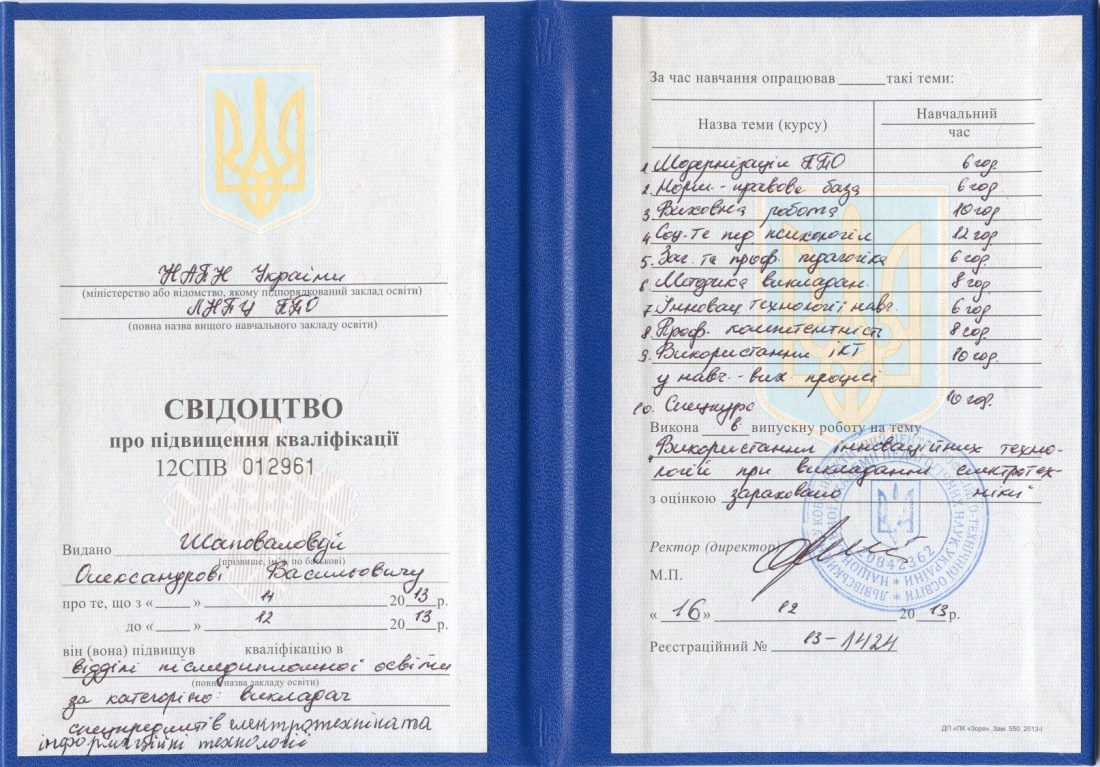 НАПН України
(міністерство або відомство, якому підпорядкований заклад освіти)
ЛНПЦ ПТО
(повна назва вищого навчального закладу освіти)
СВІДОЦТВО
про підвищення кваліфікації
12СПВ 012961
Видано Шаповаловуй
(прізвище, ім'я, по батькові)
Олександрові Васильовичу
про те, що з «____» 11 2013 р.
до «____» 12 2013 р.
він (вона) підвищув кваліфікацію в
відділі післядипломної освіти
(повна назва закладу освіти)
за категорією: викладач
спецпредметів електротехніка та
інформаційні технології
За час навчання опрацював ______такі теми:
Назва теми (курсу) Навчальний
час
1. Модернізація ПТО 6 год.
2. Норм.-правова база 6 год
3. Виховна робота 10 год
4. Соц. та пед. психологія 12 год
5. Заг. та проф. педагогіка 6 год
6. Методика викладан. 8 год
7. Інновац. технології навч. 6 год
8. Проф. компетентність 8 год
9. Використання ІКТ 10 год.
у навч.-вих. процесі
10. Спецкурс 10 год.
Викона в випускну роботу на тему
"Використання інноваційних техно-
логій при викладанні електротех-
ніки"
з оцінкою зараховано
Ректор (директор)
М.П.
« 16 » 12 2013 р.
Реєстраційний № 13-1424
ДП «ПК «Зоря», Зам. 550. 2013-І